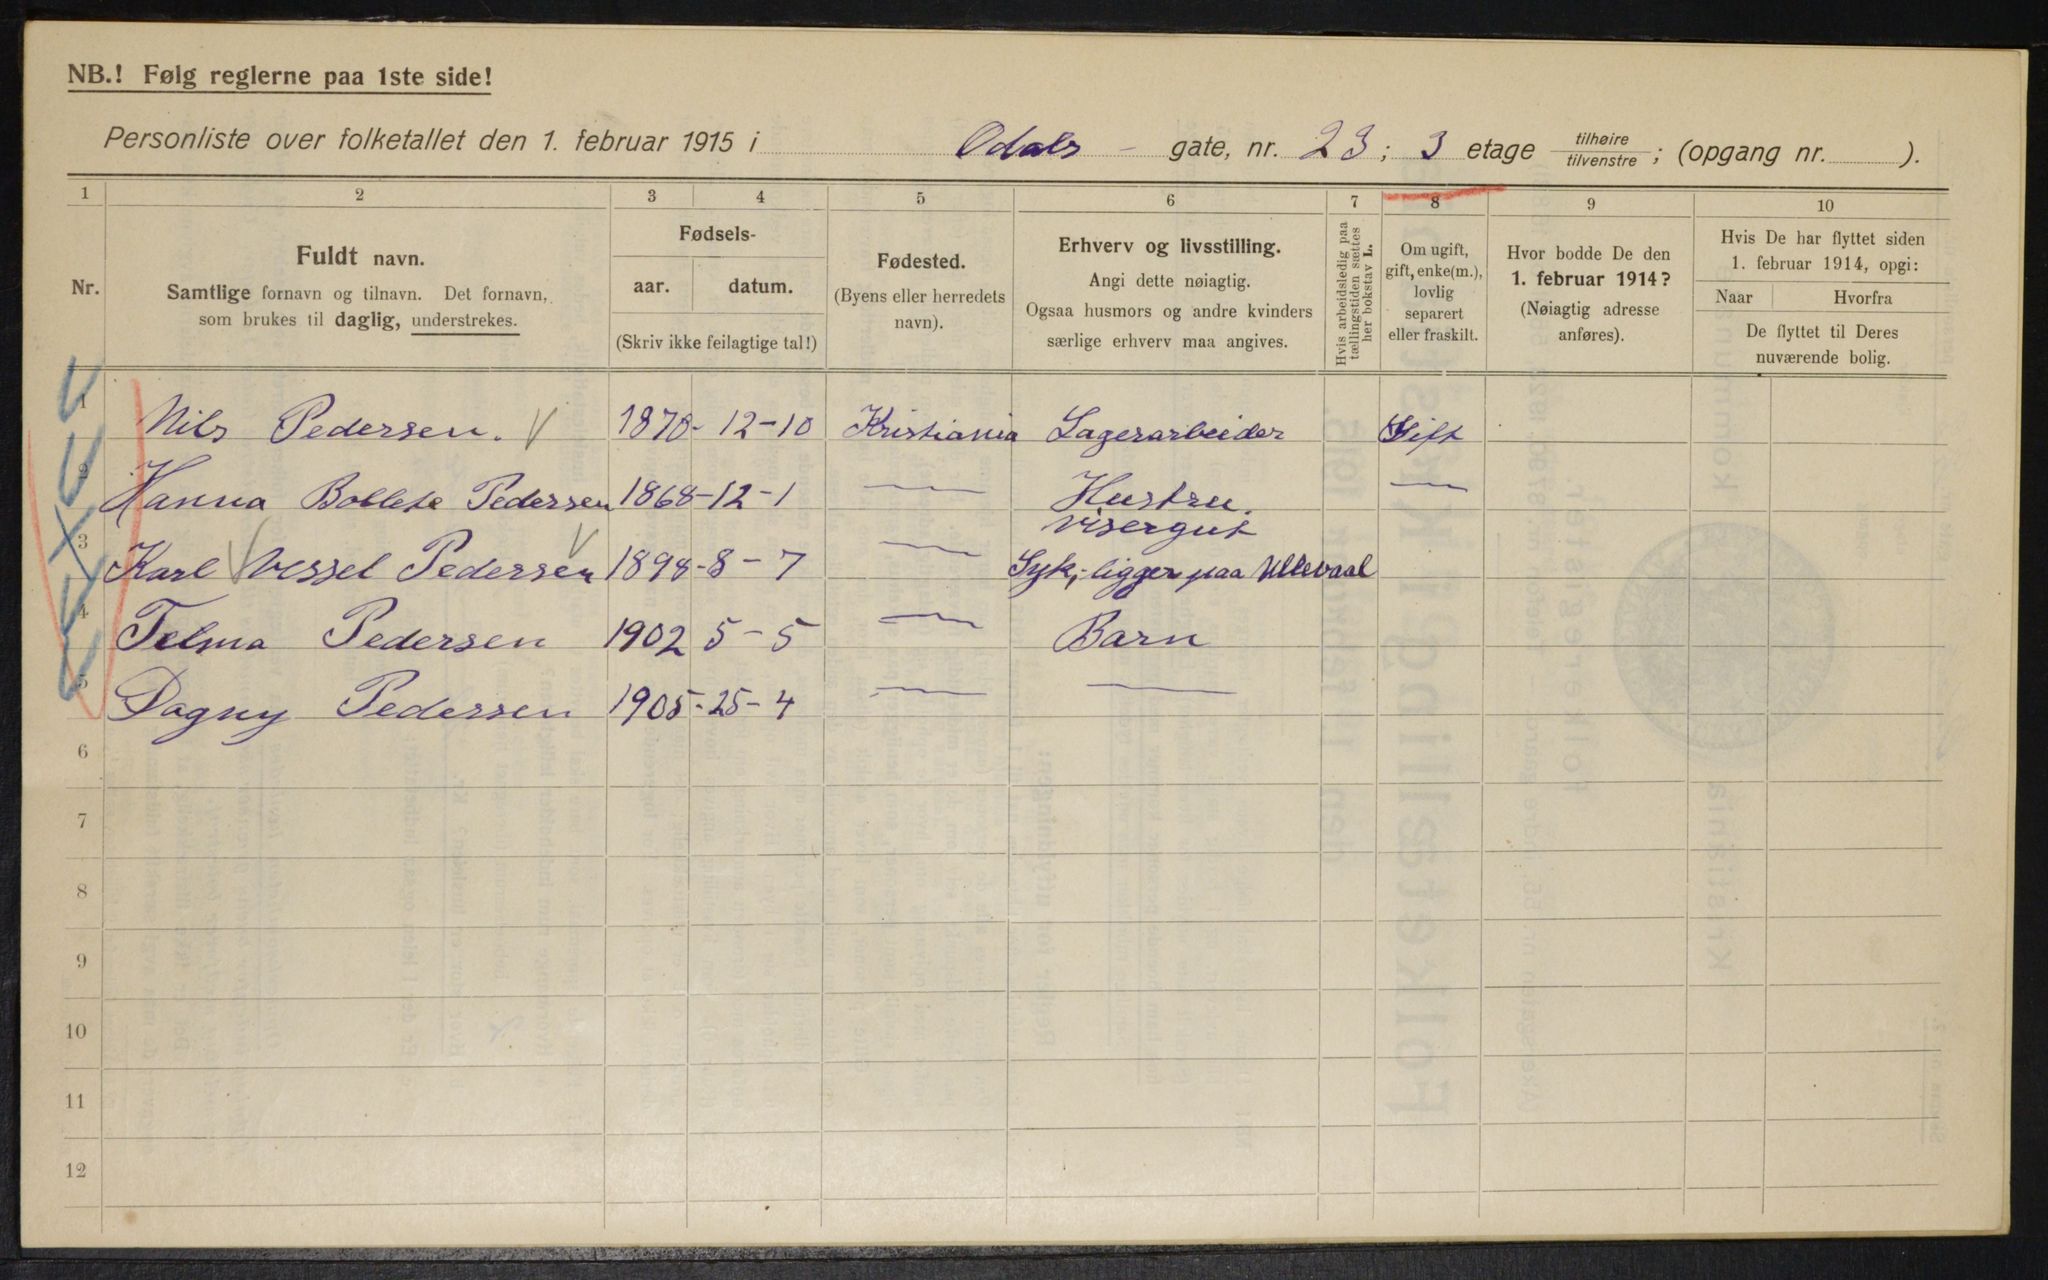 NB.! Følg reglerne paa 1ste side!
Personliste over folketallet den 1. februar 1915 i Odals - gate, nr. 23; 3 etage tilhøire / tilvenstre; (opgang nr. ).
1 2 3 4 5 6 7 8 9 10
Nr.
Fuldt navn.
Samtlige fornavn og tilnavn. Det fornavn,
som brukes til daglig, understrekes.
Fødsels-
aar. datum.
(Skriv ikke feilagtige tal!)
Fødested.
(Byens eller herredets
navn).
Erhverv og livsstilling.
Angi dette nøiagtig.
Ogsaa husmors og andre kvinders
særlige erhverv maa angives.
Hvis arbeidsledig paa
tællingstiden sættes
her bokstav L.
Om ugift,
gift, enke(m.),
lovlig
separert
eller fraskilt.
Hvor bodde De den
1. februar 1914?
(Nøiagtig adresse
anføres).
Hvis De har flyttet siden
1. februar 1914, opgi:
Naar Hvorfra
De flyttet til Deres
nuværende bolig.
1 Nils Pedersen. 1870- 12-10 Kristiania Lagerarbeider Gift
2 Hanna Bollete Pedersen 1868-12-1 — Hustru. —
visergut
3 Karl Wessel Pedersen 1898-8-7 — Syk, ligger paa Ullevaal
4 Telma Pedersen 1902 5-5 — Barn
5 Dagny Pedersen 1905-25-4 — —
6
7
8
9
10
11
12